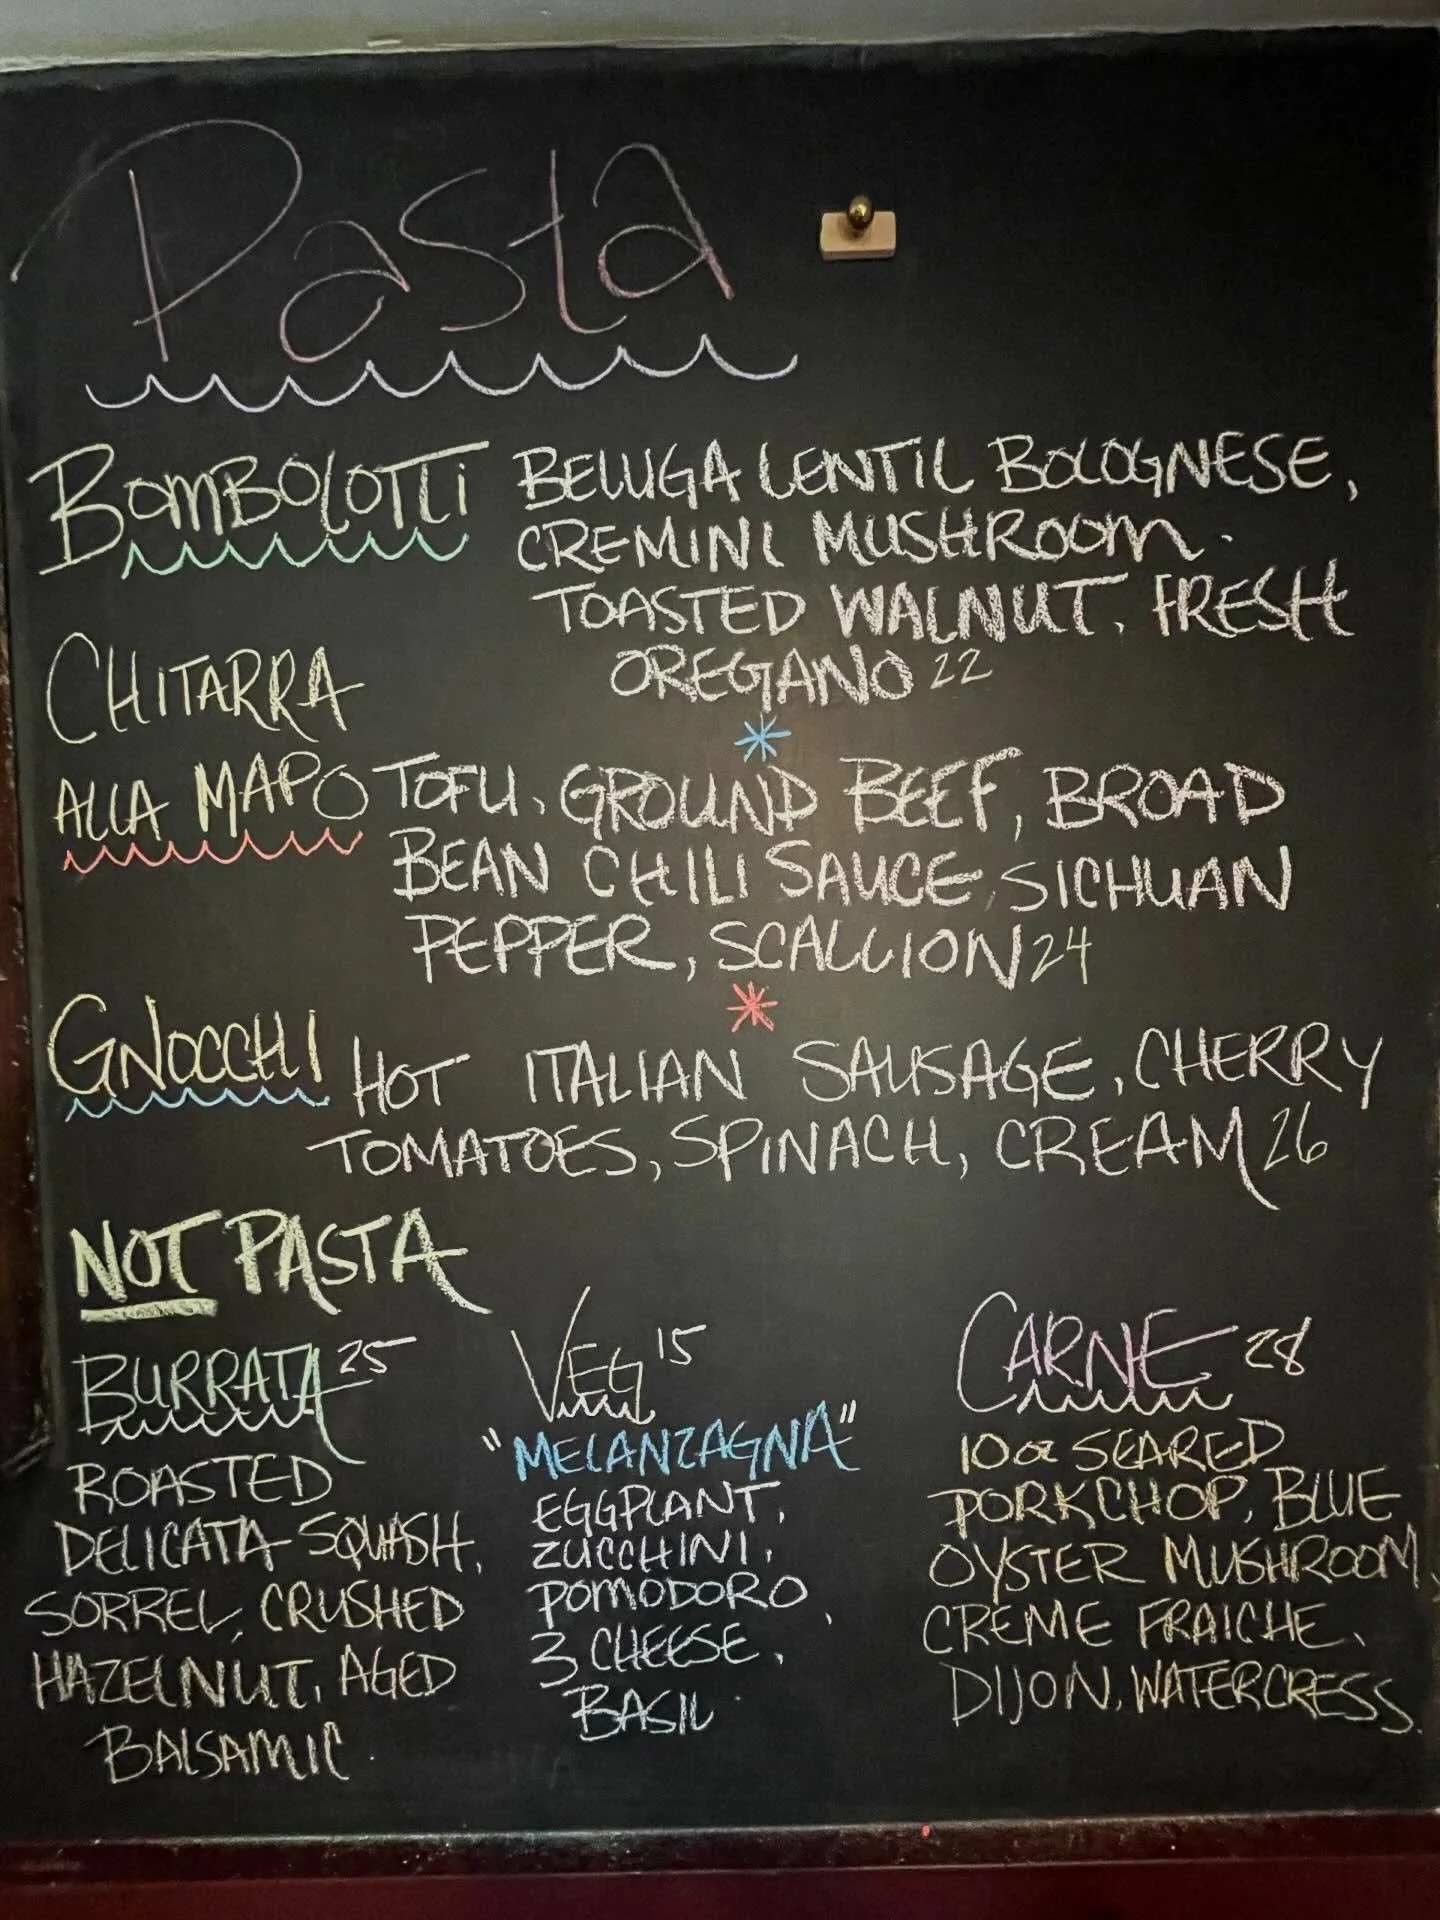 Pasta
BOMBOLOTTI BELUGA LENTIL BOLOGNESE,
CREMINI MUSHROOM.
TOASTED WALNUT. FRESH
OREGANO 22
CHITARRA
ALLA MAPO TOFU, GROUND BEEF, BROAD
BEAN CHILI SAUCE, SICHUAN
PEPPER, SCALLION 24
GNOCCHI HOT ITALIAN SAUSAGE, CHERRY
TOMATOES, SPINACH, CREAM 26
NOT PASTA
BURRATA 25
ROASTED
DELICATA SQUASH,
SORREL, CRUSHED
HAZELNUT, AGED
BALSAMIC.
VEG 15
"MELANZAGNA"
EGGPLANT,
ZUCCHINI,
POMODORO,
3 CHEESE,
BASIL.
CARNE 28
10oz SEARED
PORKCHOP, BLUE
OYSTER MUSHROOM,
CREME FRAICHE,
DIJON, WATERCRESS.